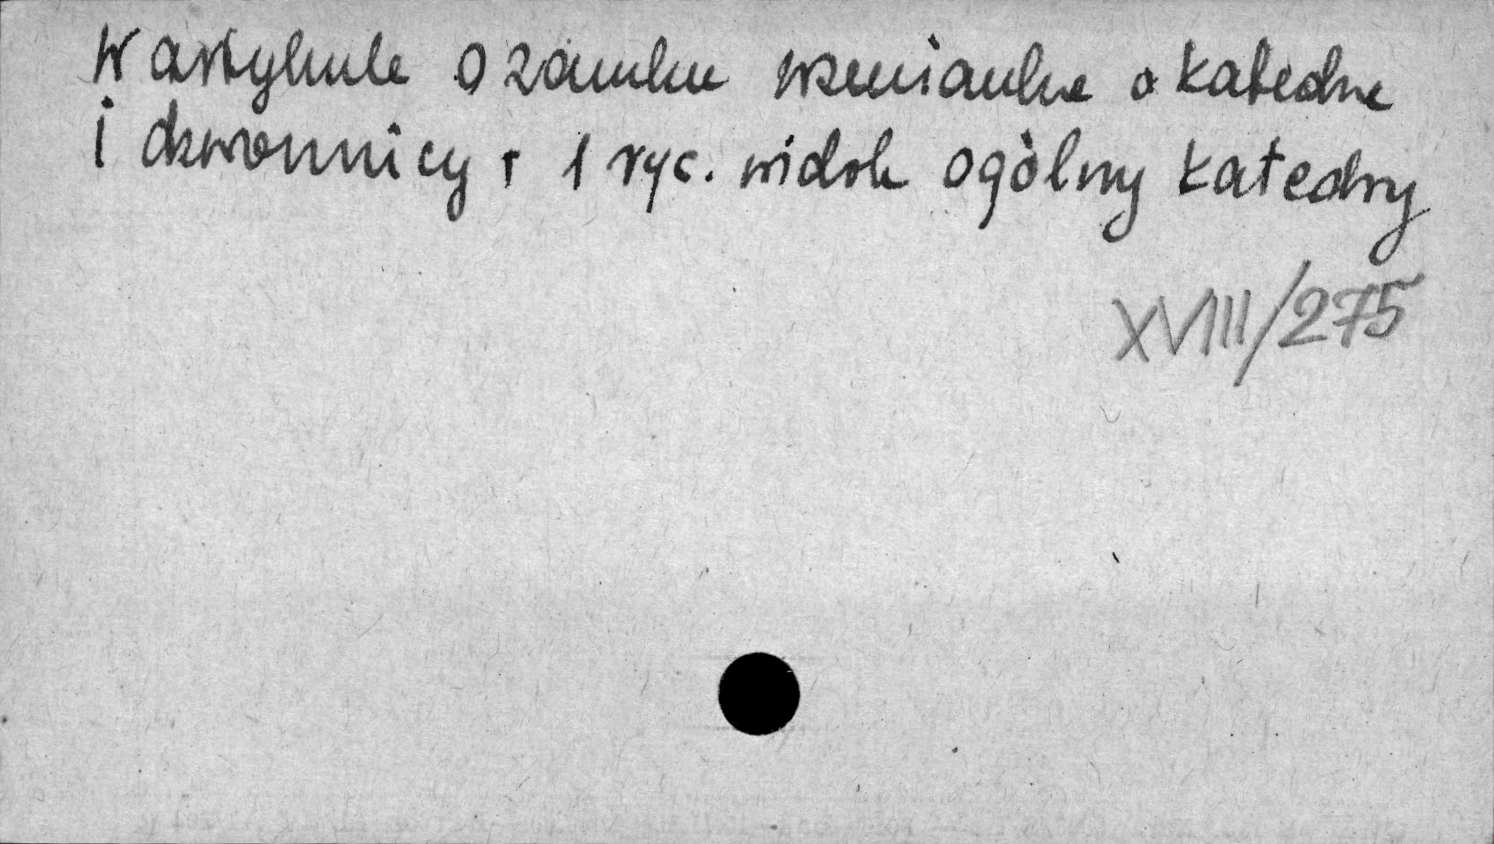 W artykule o zamku wzmianka o katedrze
i dzwonnicy + 1 ryc. widok ogólny katedry
XVIII/275